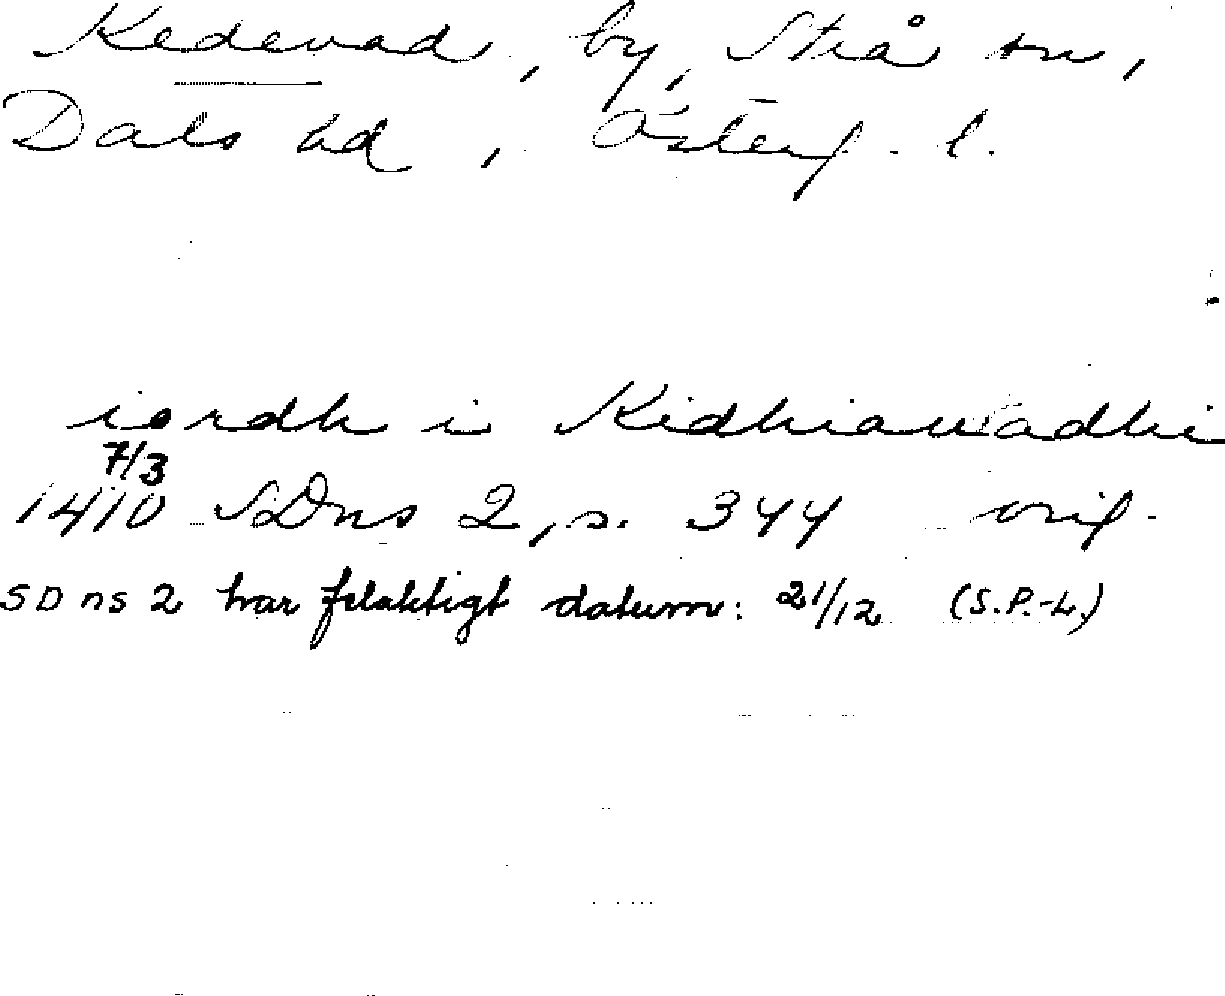 Kedevad, by, Strå sn,
Dals hd, Österg. l.
iordh i Kidhiawadhi
7/3
1410 SDns 2, s. 344 orig.
SD ns 2 har felaktigt datum: 21/12 (S.P.-L.)